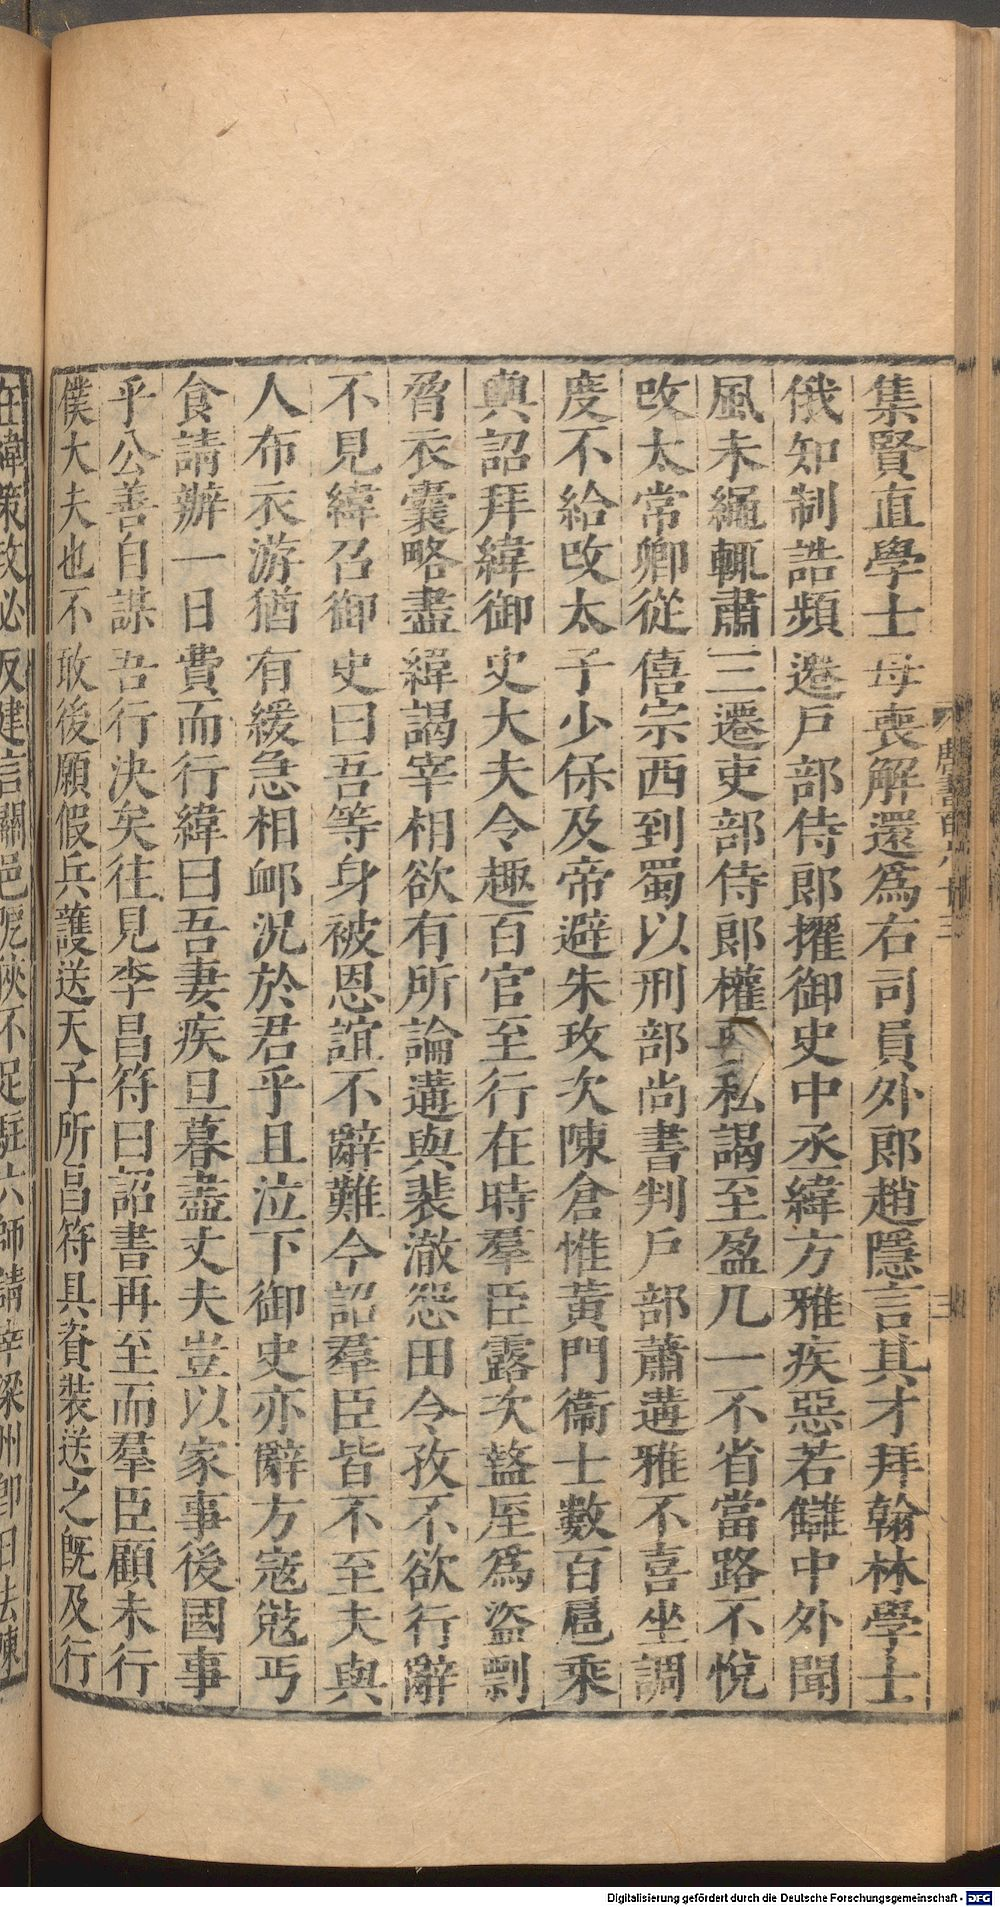 集賢直學士母喪解還爲右司員外郎趙隱言其才拜翰林學士
俄知制誥頻遷戶部侍郎擢御史中丞緯方雅疾惡若讎中外聞
風未繩輒肅三遷吏部侍郎權私謁至盈几一不省當路不悅
改太常卿從僖宗西到蜀以刑部尚書判戶部蕭遘雅不喜坐調
度不給改太子少保及帝避朱玫次陳倉惟黃門衞士數百扈乘
輿詔拜緯御史大夫令趣百官至行在時羣臣露次盩厔爲盜剽
脅衣囊略盡緯謁宰相欲有所論遘與裴澈怨田令孜不欲行辭
不見緯召御史曰吾等身被恩誼不辭難今詔羣臣皆不至夫與
人布衣游猶有緩急相卹況於君乎且泣下御史亦辭方寇剠丐
食請辦一日費而行緯曰吾妻疾旦暮盡丈夫豈以家事後國事
乎公善自謀吾行決矣往見李昌符曰詔書再至而羣臣顧未行
僕大夫也不敢後願假兵護送天子所昌符具資裝送之既及行
在緯策玫必反建言關邑阨陿不足駐六師請幸梁州卽日去陳
Digitalisierung gefördert durch die Deutsche Forschungsgemeinschaft - DFG